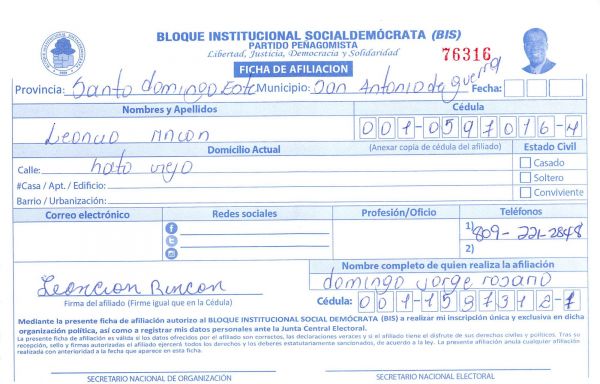 BLOQUE INSTITUCIONAL SOCIALDEMÓCRATA (BIS)
PARTIDO PEÑAGOMISTA
Libertad, Justicia, Democracia y Solidaridad
76316
FICHA DE AFILIACION
Provincia: Santo domingo Este Municipio: San Antonio de guerra Fecha:
Nombres y Apellidos Cédula
Leoncio Rincon 001-0597016-4
Domicilio Actual (Anexar copia de cédula del afiliado) Estado Civil
Calle: hato viejo Casado
#Casa / Apt. / Edificio: Soltero
Barrio / Urbanización: Conviviente
Correo electrónico Redes sociales Profesión/Oficio Teléfonos
1) 809-221-2848
2)
Nombre completo de quien realiza la afiliación
Leoncion Rincon domingo jorge rosario
Firma del afiliado (Firme igual que en la Cédula) Cédula: 001-1597312-1
Mediante la presente ficha de afiliación autorizo al BLOQUE INSTITUCIONAL SOCIAL DEMÓCRATA (BIS) a realizar mi inscripción única y exclusiva en dicha
organización política, así como a registrar mis datos personales ante la Junta Central Electoral.
La presente ficha de afiliación es válida si los datos ofrecidos por el afiliado son correctos, las declaraciones veraces y si el afiliado tiene el disfrute de sus derechos civiles y políticos. Tras su
recepción, sello y firmas autorizadas el afiliado ejercerá todos los derechos y los deberes estatutariamente sancionados, de acuerdo a la ley. La presente afiliación anula cualquier afiliación
realizada con anterioridad a la fecha que aparece en esta ficha.
SECRETARIO NACIONAL DE ORGANIZACIÓN SECRETARIO NACIONAL ELECTORAL